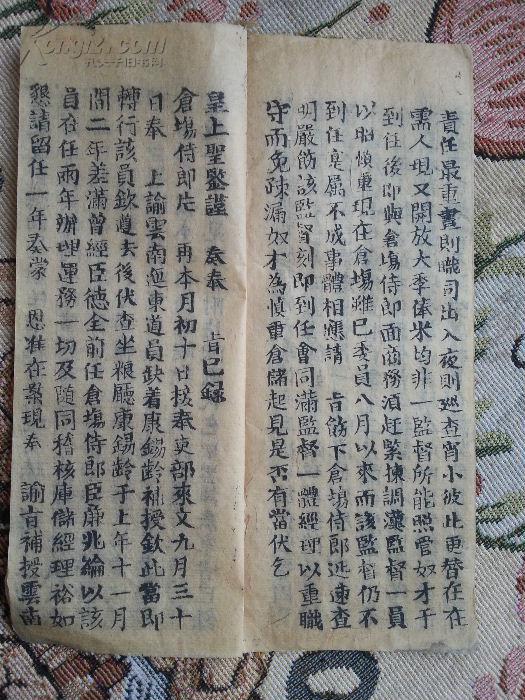 責任最重晝則職司出入夜則巡查宵小彼此更替在在
需人現又開放大季俸米均非一監督所能照管奴才于
到任後即與倉塲侍郎面商務須赶緊揀調漢監督一員
以昭慎重現在倉塲雖已委員八月以來而該監督仍不
到任寔屬不成事體相應請 旨飭下倉塲侍郎迅速查
明嚴飭該監督刻即到任會同滿監督一體經理以重職
守而免疎漏奴才為慎重倉儲起見是否有當伏乞
皇上聖鑒謹 奏奉 旨已録
倉塲侍郎片 再本月初十日接奉吏部來文九月三十
日奉 上諭雲南迤東道員缺着康錫齡補授欽此當即
轉行該員欽遵去後伏查坐粮廳康錫齡于上年十一月
間二年差滿曾經臣德全前任倉塲侍郎臣廉兆綸以該
員在任兩年辦理運務一切及随同稽核庫儲經理裕如
懇請留任一年奏蒙 恩准在案現奉 諭旨補授雲南